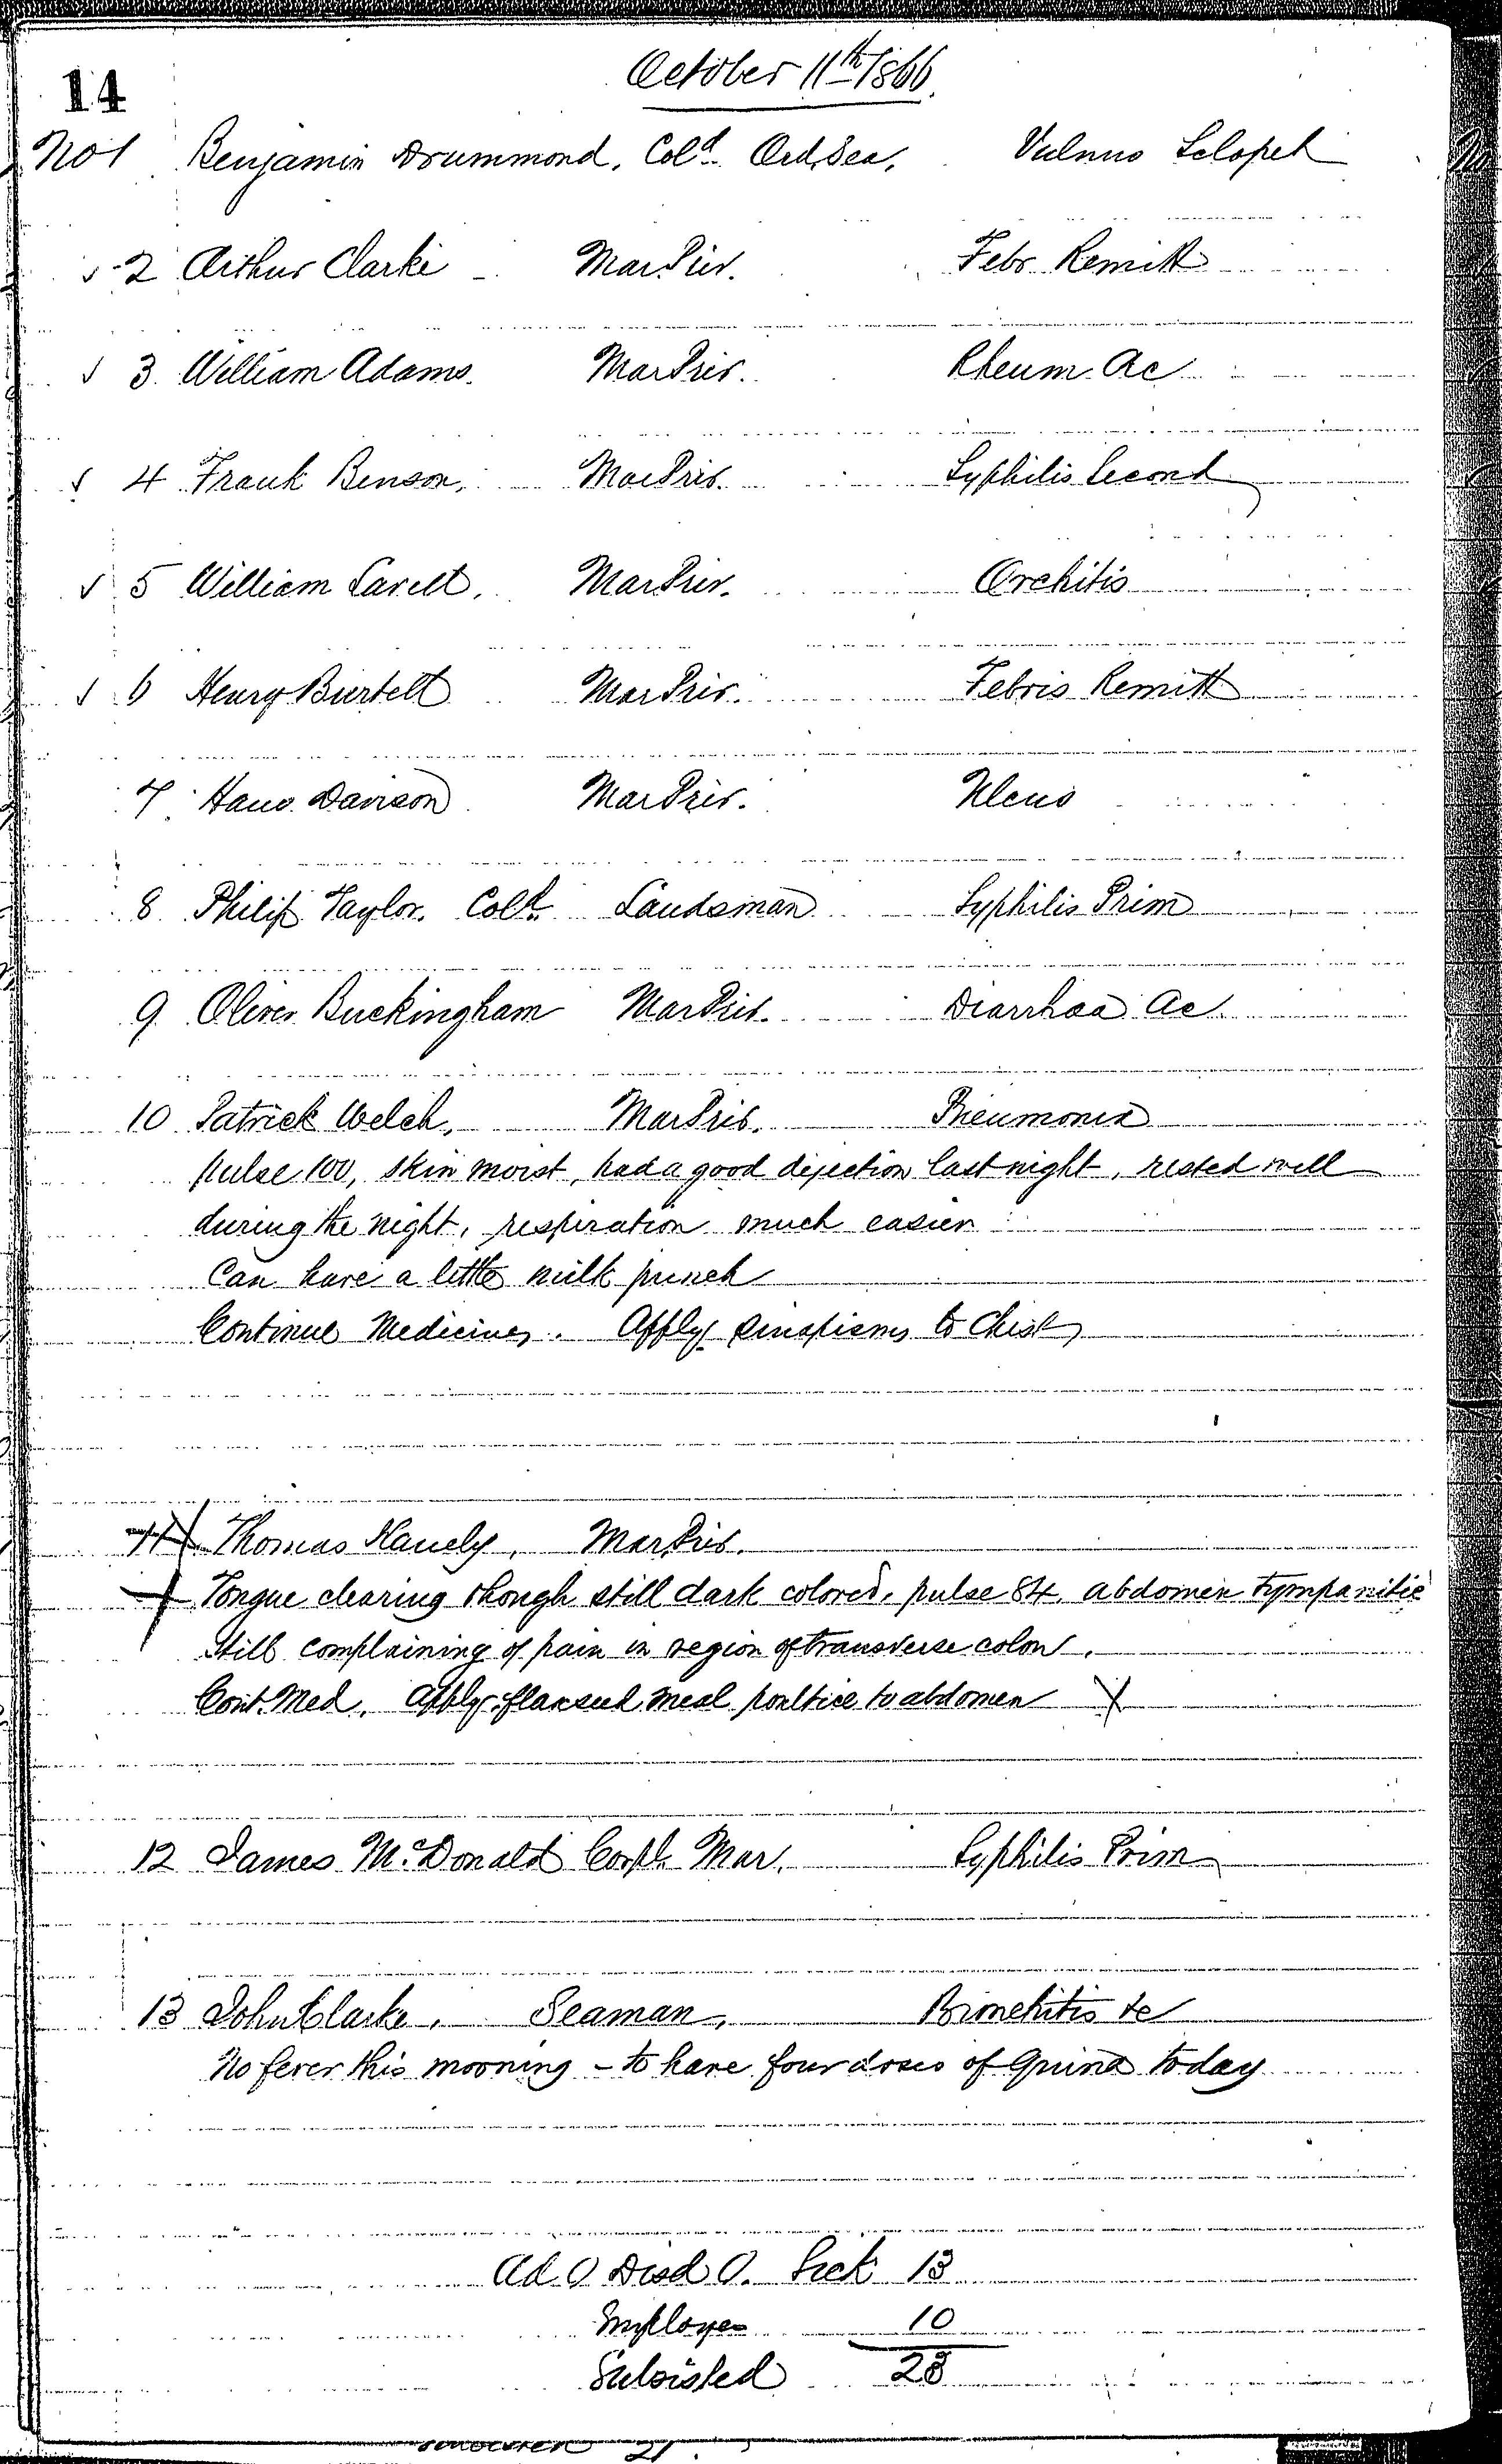 14
October 11th 1866.
No 1 Benjamin Drummond, Cold. Ord. Sea. Vulnus Sclopet
2 Arthur Clarke Mar Priv. Febr Remitt
3. William Adams. Mar Priv. Rheum. Ac
4 Frank Benson, Mar Priv. Syphilis Second
5 William Mar Priv. Orchitis
6 Henry Burtelt Mar Priv. Febris Remitt
7 Davison Mar Priv. Ulcus
8 Philip Taylor. Cold. Landsman Syphilis Prim
9 Oliver Buckingham Mar Priv. Diarrhoea Ac.
10 Patrick Welch, Mar Priv. Pneumonia
pulse 100, skin moist, had a good dejection last night, rested well
during the night, respiration much easier
Can have a little milk punch
Continue Medicines. Apply sinapisms to Chest
11 Thomas Mar Priv.
Tongue clearing though still dark colored, pulse 84, abdomen tympanitic
Still complaining of pain in region of transverse colon.
Cont. Med. Apply flaxseed meal poultice to abdomen
12 James McDonald Corpl. Mar. Syphilis Prim
13 John Clarke, Seaman, Bronchitis
No fever this morning - to have four doses of Quina today
Ad 0 Disd 0. Sick 13
Employes 10
Subsisted 23
21